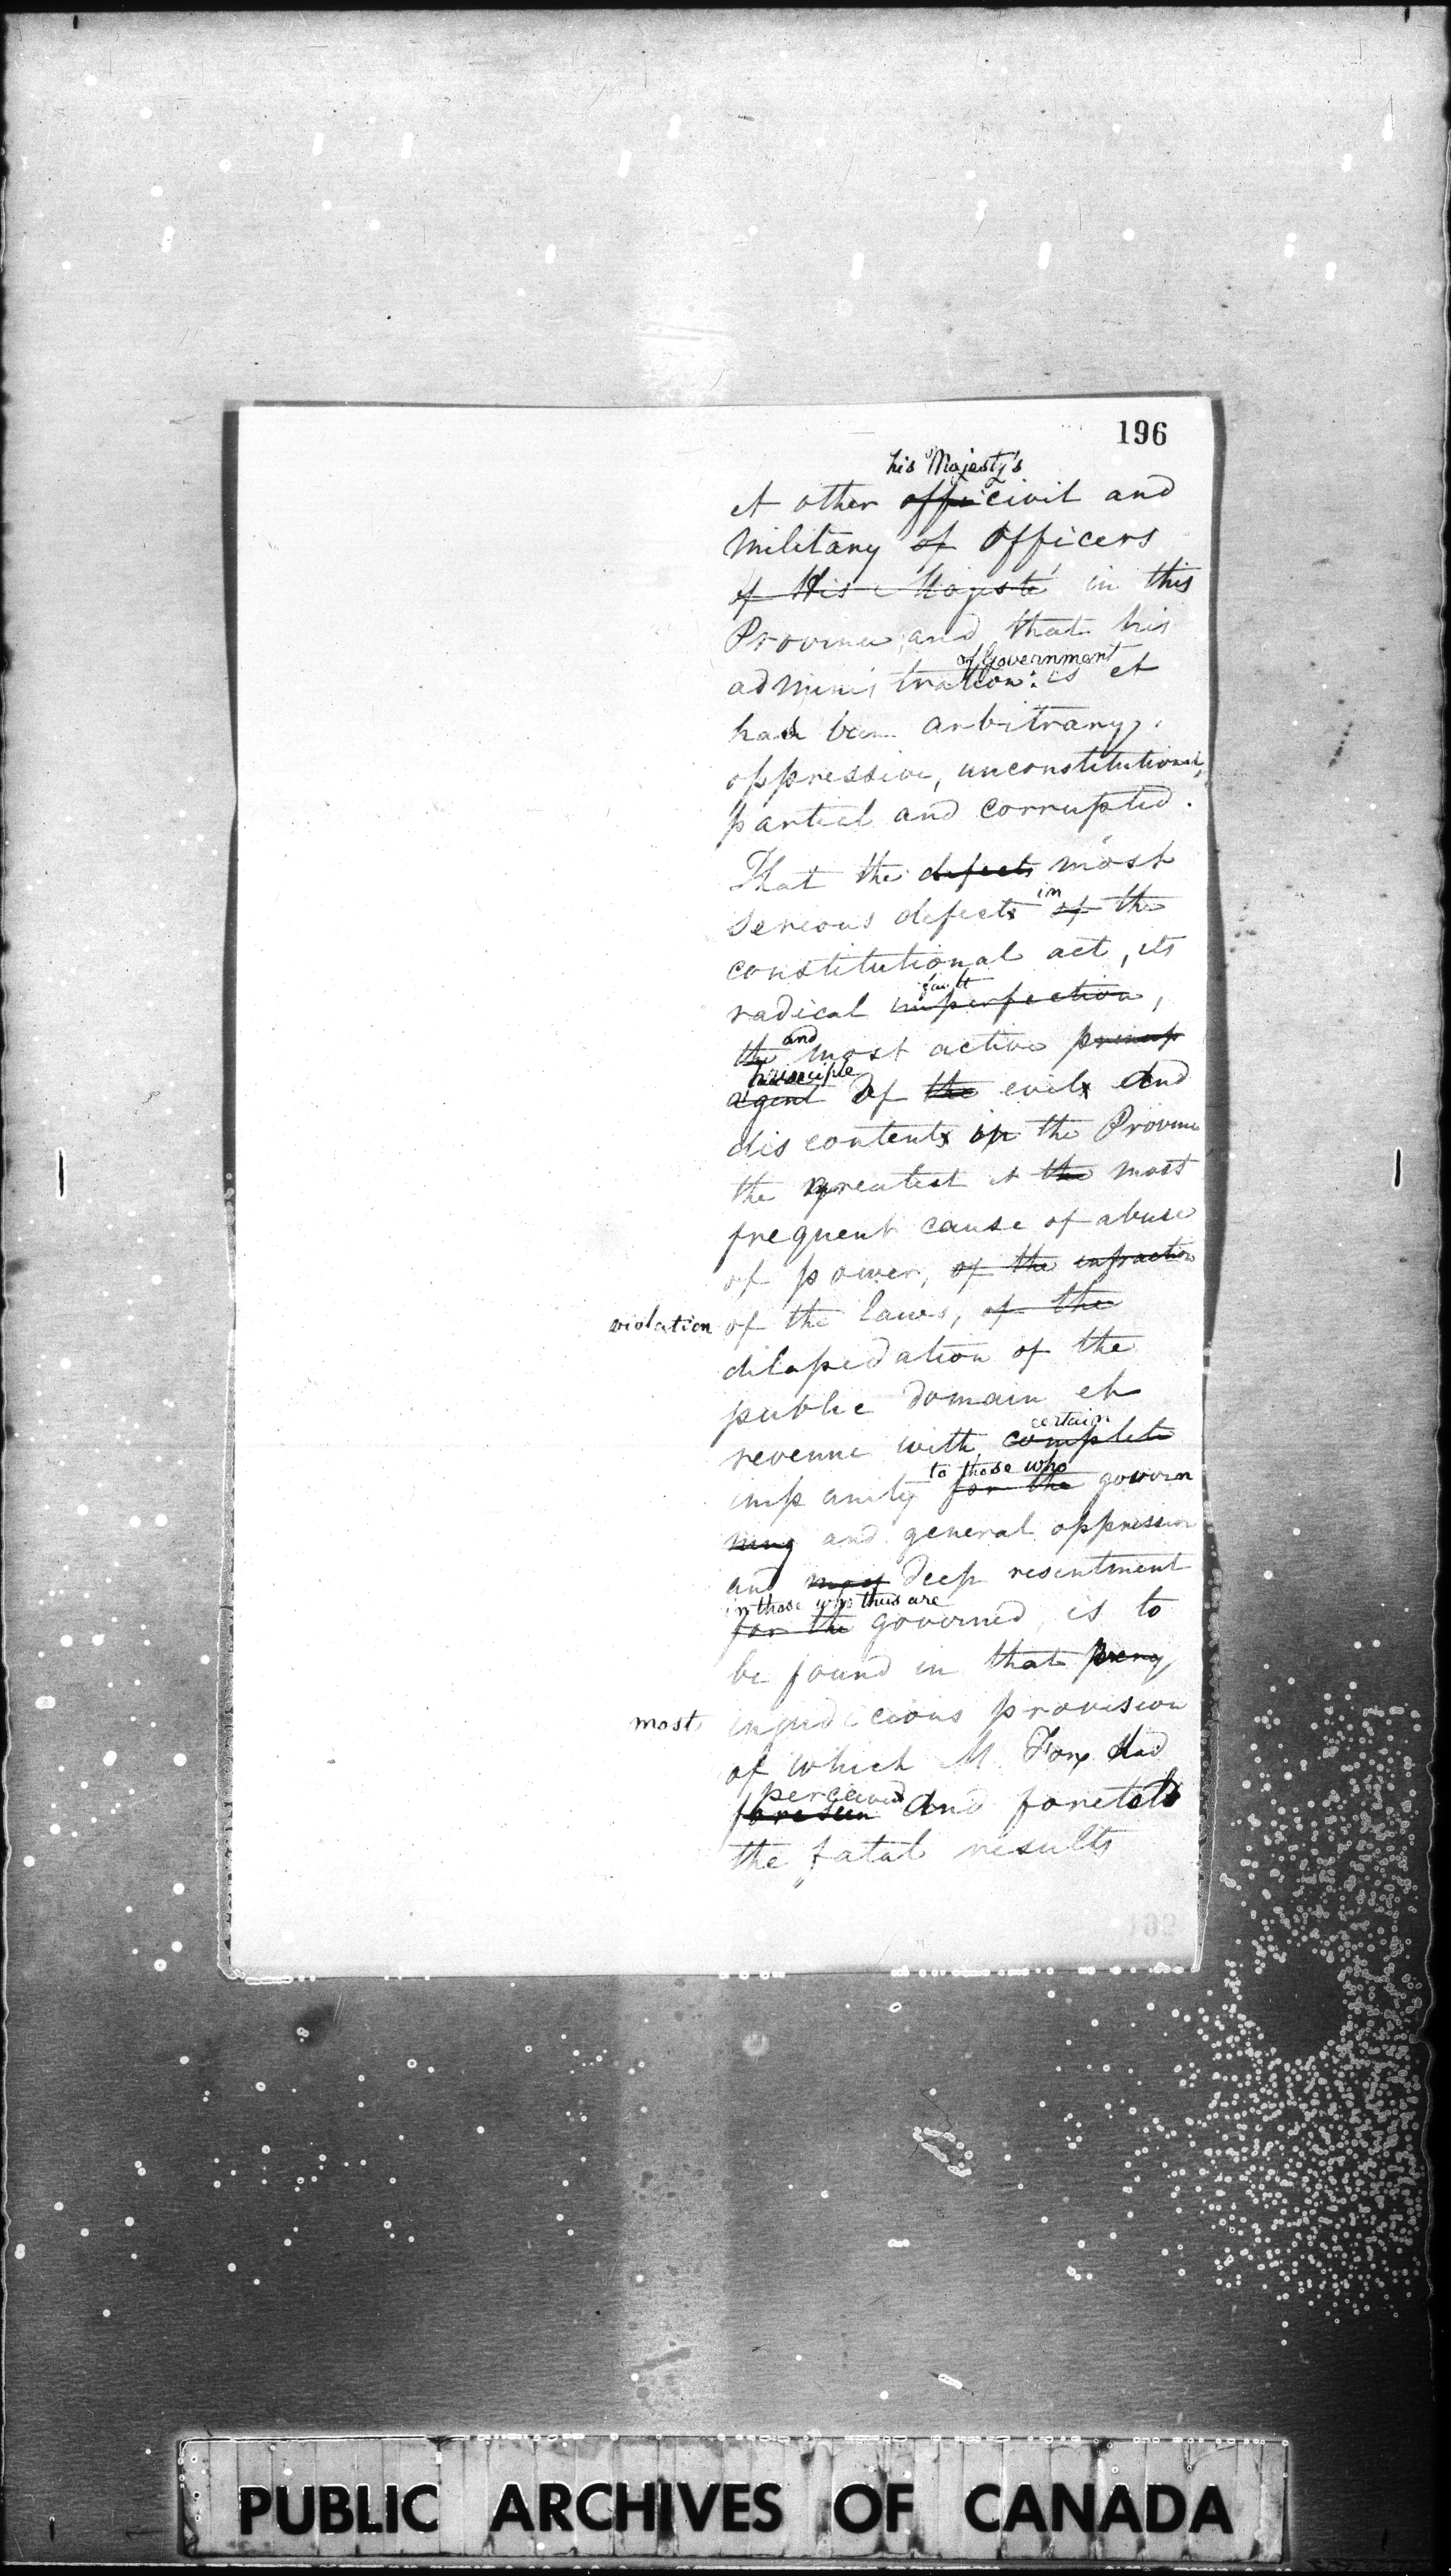 196
his Majesty's
et other offi civil and
military of officers
of His Majesté in this
Province, and that his
of Government
administration: is et
had been arbitrary,
oppressive, unconstitutional,
partial and corrupted.
That the defects most
in
serious defects of the
constitutional act, its
fault
radical imperfection,
and
the most active princip
principle
agent of the evils and
discontents in the Province
the greatest et the most
frequent cause of abuse
of power, of the infraction
violation of the laws, of the
dilapidation of the
public domain et
certain
revenue with complete
to those who
impunity for the govern
ning and general oppression
and deep resentment
in those who thus are
for the governed, is to
be found in that
most injudicious provision
of which M. Fox had
perceived
foreseen and foretold
the fatal results
PUBLIC ARCHIVES OF CANADA